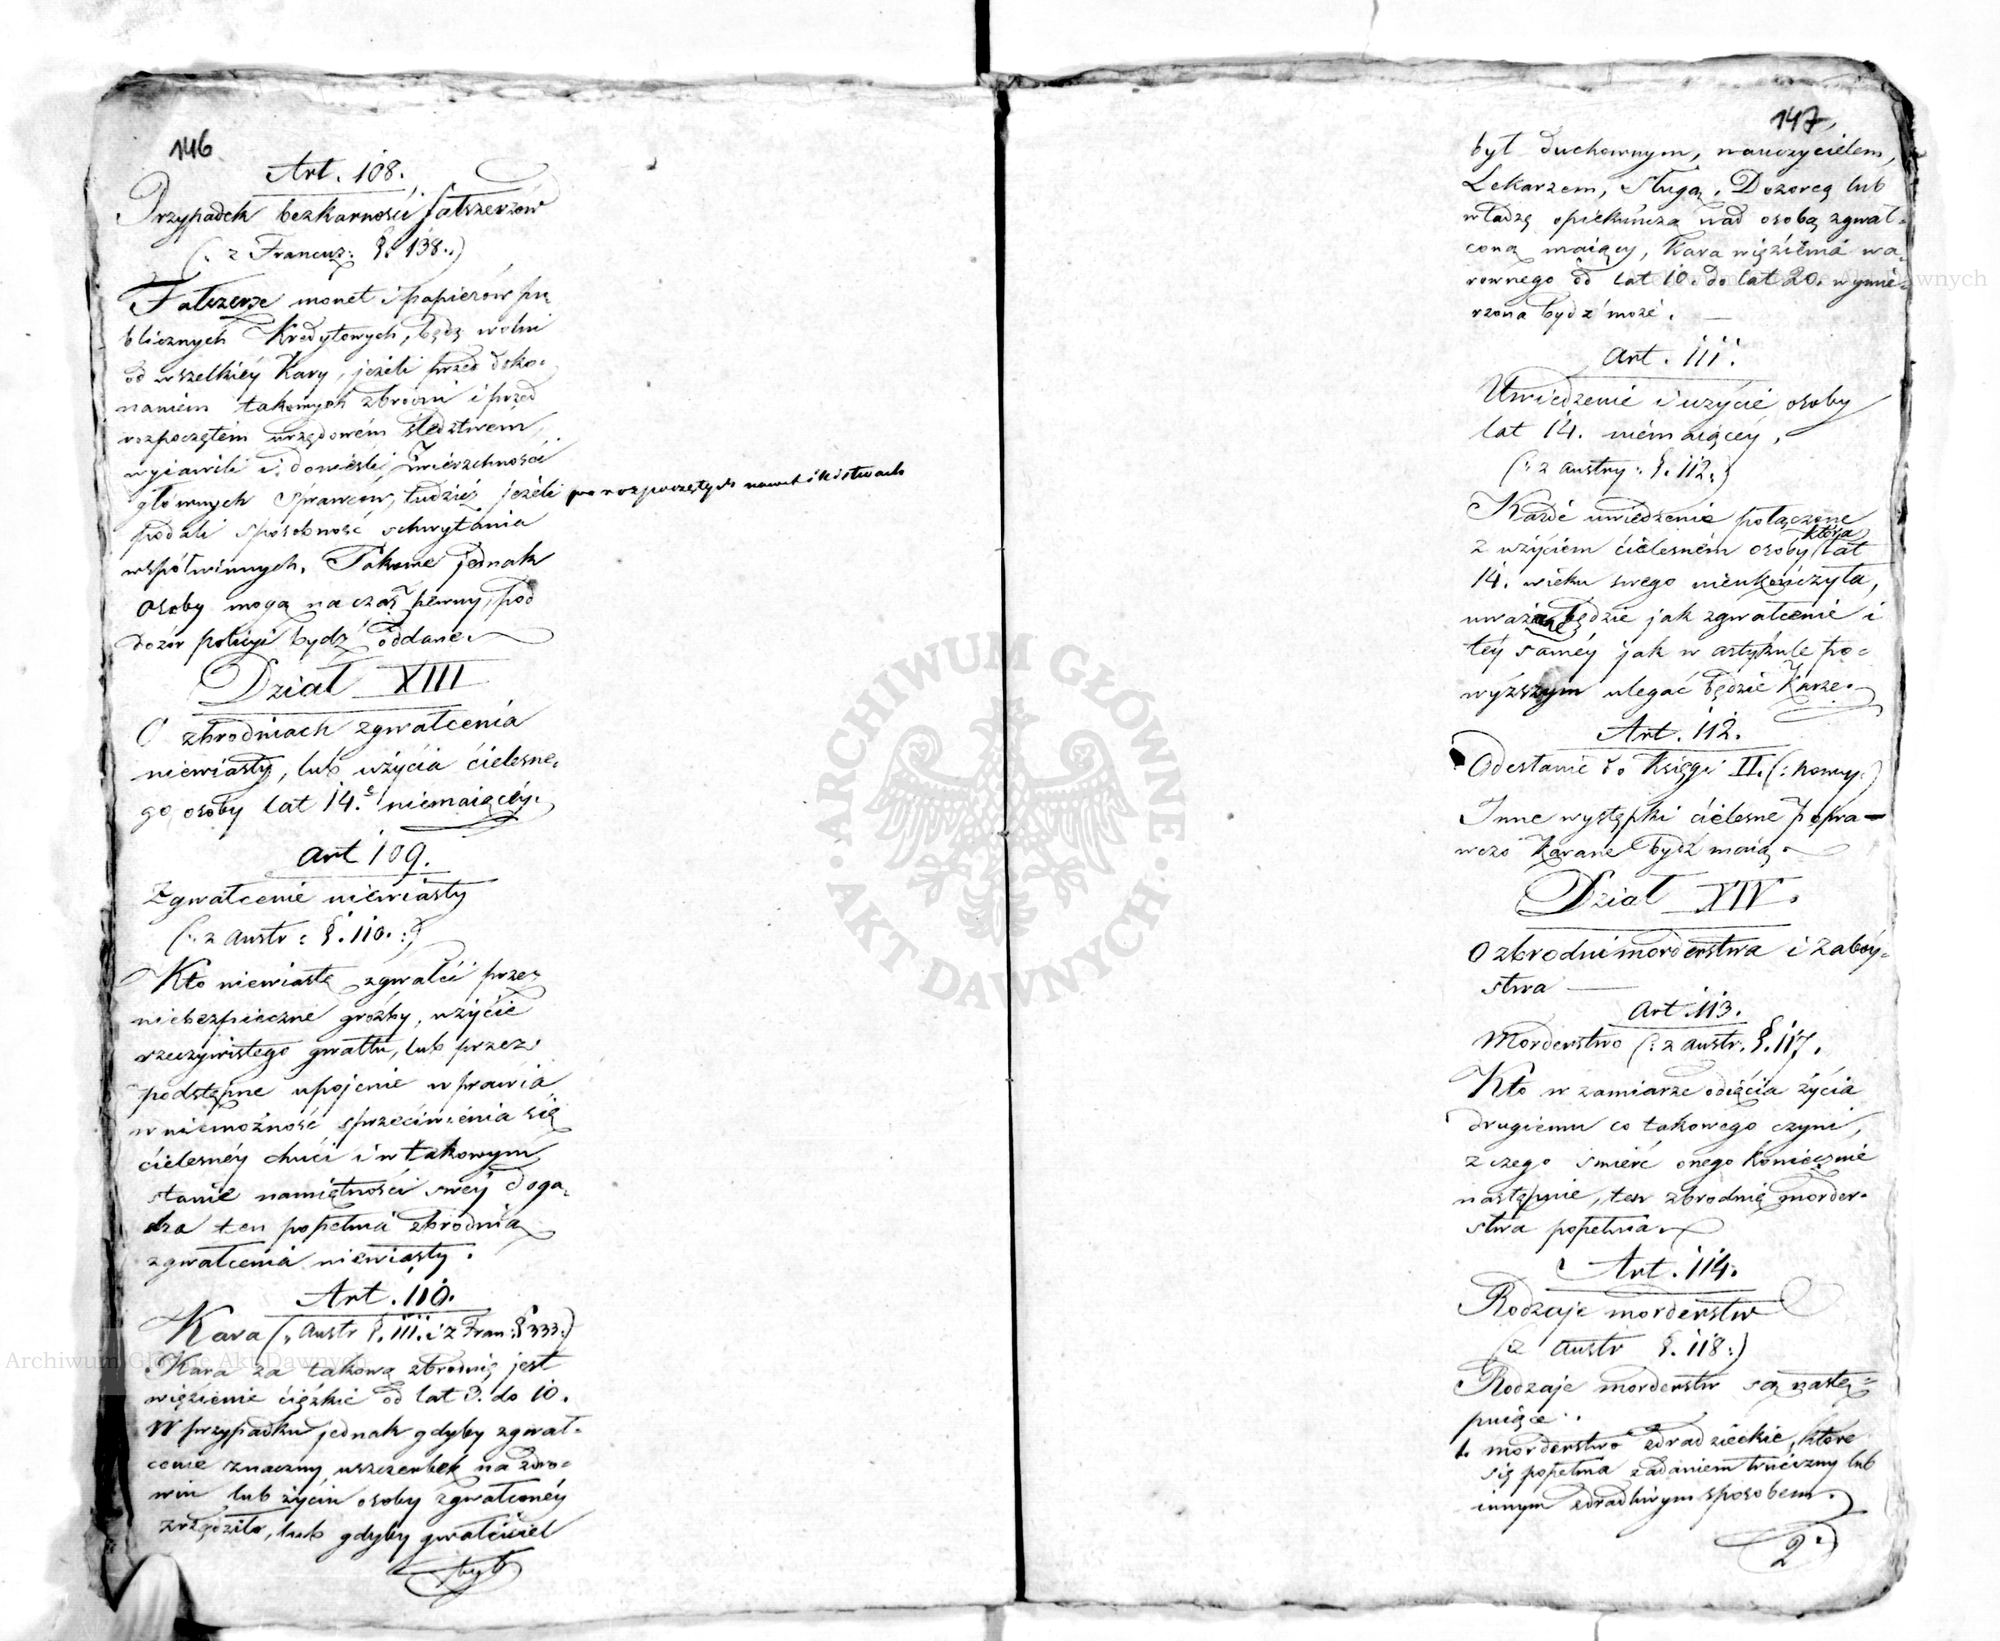 146
Art. 108.
Przypadek bezkarności fałszerzów
(: z Francuz: §. 138.:)
Fałszerze monet i papierów pu-
blicznych Kredytowych, będą wolni
od wszelkiéy Kary, jeżeli przed doko-
naniem takowych zbrodni i przed
rozpoczętém urzędowém śledztwém,
wyiawili i donieśli Zwierzchności
głównych sprawców, tudzież jeżeli po rozpoczętych
podali sposobność schwytania
współwinnych. Takowe jednak
osoby mogą na czas pewny, pod
dozór policyi bydź oddane.
Dział XIII
O zbrodniach zgwałcenia
niewiasty, lub użycia cielesne-
go osoby lat 14. niemaiącéy.
Art 109.
Zgwałcenie niewiasty
(: z austr: §. 110. :)
Kto niewiastę zgwałci przez
niebezpieczne groźby, użycie
rzeczywistego gwałtu, lub przez
podstępne upojenie wprawia
w niemożność sprzeciwienia się
cielesnéy chuci i w takowym
stanie namiętności swéy doga-
dza ten popełnia zbrodnią
zgwałcenia niewiasty.
Art. 110.
Kara (: Austr §. 111. i z Fran: § 333:)
Kara za takową zbrodnię jest
więzienie ciężkie od lat 3. do 10.
W przypadku jednak gdyby zgwał-
cenie znaczny uszczerbek na zdro-
wiu lub życiu osoby zgwałconéy
zrządziło, lub gdyby gwałciciel
był
147
był duchownym, nauczycielem,
Lekarzem, Sługą, Dozorcą lub
władzę opiekuńczą nad osobą zgwał-
coną maiący, Kara więzienia wa-
rownego od lat 10. do lat 20. wymie-
rzona bydź może.
Art. 111.
Uwiedzenie i użycie osoby
lat 14. niemaiącéy,
(: z austry: §. 112.:)
Każde uwiedzenie połączone
z użyciem cielesném osoby która lat
14. wieku swego nieukończyła,
uważane będzie jak zgwałcenie i
téy saméy jak w artykule po-
wyższym ulegać będzie Karze.
Art. 112.
Odesłanie do Księgi II. (: nowy:)
Inne występki cielesne popra-
wczo Karane bydź maią.
Dział XIV.
O zbrodni morderstwa i zabóy-
stwa
Art. 113.
Morderstwo (: z austr. §. 117.
Kto w zamiarze odięcia życia
drugiemu co takowego czyni,
z czego śmierć onego koniecznie
następuie, ten zbrodnię morder-
stwa popełnia
Art. 114.
Rodzaje morderstw
(z austr §. 118:)
Rodzaje morderstw są nastę-
puiące:
1. morderstwo zdradzieckie, które
się popełnia zadaniem trucizny lub
innym zdradliwym sposobem.
2.
ARCHIWUM GŁÓWNE · AKT DAWNYCH ·
Archiwum Główne Akt Dawnych
Archiwum Główne Akt Dawnych